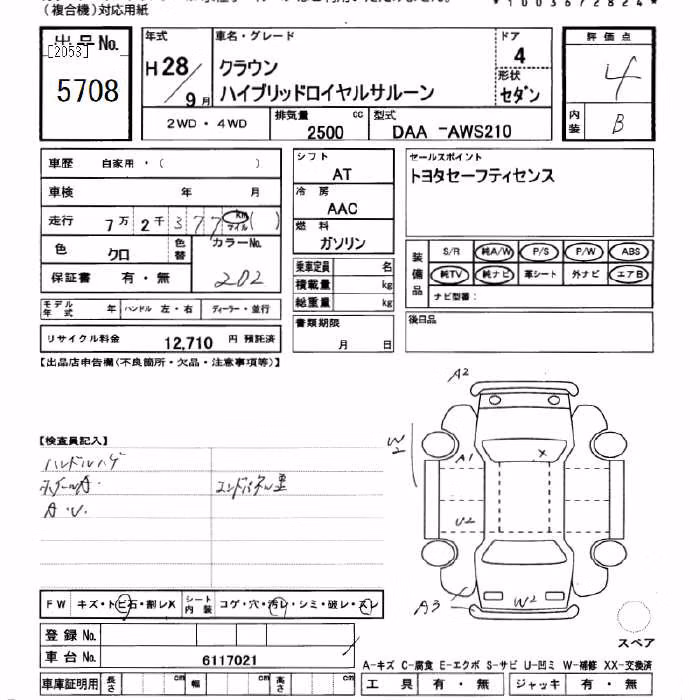 (複合機)対応用紙
*1003672824*
出品No.
[2053]
5708
年式
H28/9月
車名・グレード
クラウン
ハイブリッドロイヤルサルーン
ドア
4
形状
セダン
2WD・4WD
排気量 cc
2500
型式
DAA -AWS210
評価点
4
内装
B
車歴 自家用・( )
車検 年 月
走行 7万2千377 km マイル( )
色 クロ 色替 カラーNo.
202
保証書 有・無
モデル年式 年 ハンドル 左・右 ディーラー・並行
リサイクル料金 12,710 円 預託済
シフト
AT
冷房
AAC
燃料
ガソリン
乗車定員 名
積載量 kg
総重量 kg
書類期限
月 日
セールスポイント
トヨタセーフティセンス
装備品
S/R 純A/W P/S P/W ABS
純TV 純ナビ 革シート 外ナビ エアB
ナビ型番:
後日品
【出品店申告欄(不良箇所・欠品・注意事項等)】
【検査員記入】
ハンドルハゲ
A・U・
A2
W2
A1
X
U2
W2
A3
FW キズ・トビ石・割レX シート内装 コゲ・穴・汚レ・シミ・破レ・スレ
登録No.
車台No. 6117021
車庫証明用 長さ cm 幅 cm 高さ cm
スペア
A-キズ C-腐食 E-エクボ S-サビ U-凹ミ W-補修 XX-交換済
工具 有・無 ジャッキ 有・無